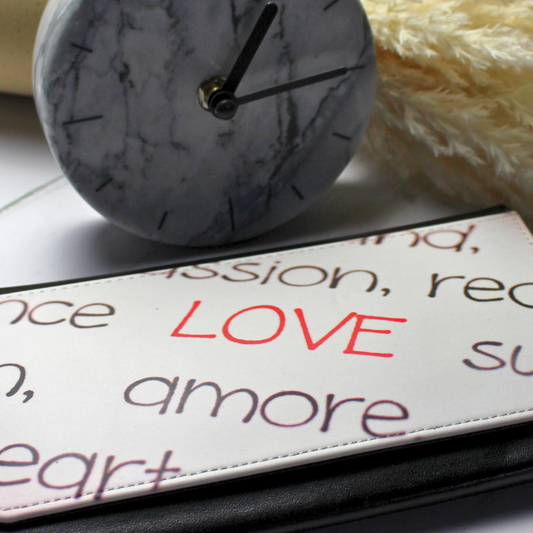 ssion, red
nce LOVE su
n, amore
eart